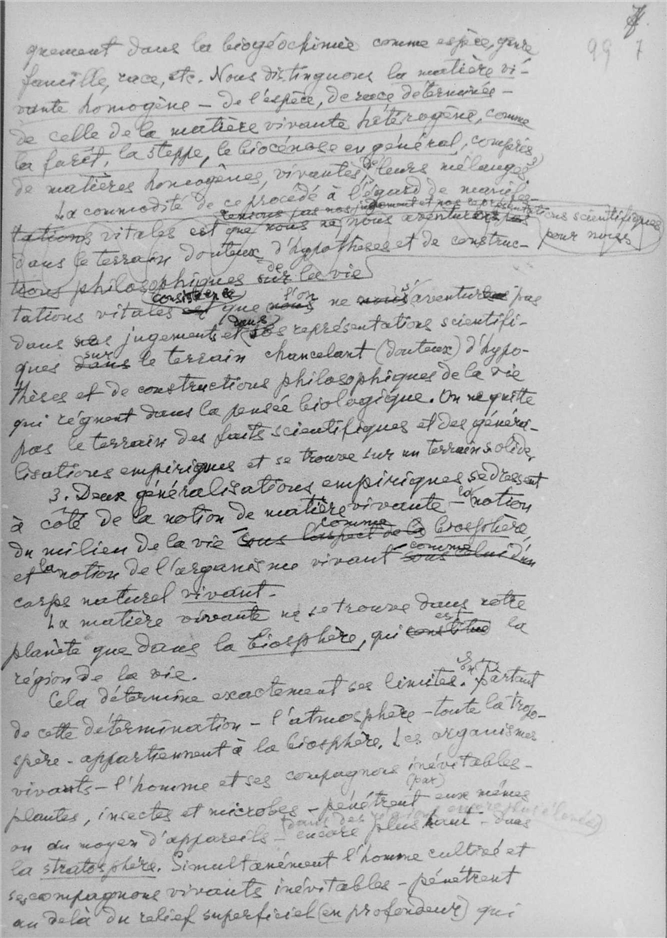 7.
99 7
quement dans la biogéochimie comme espèce, genre
famille, race, etc. Nous distinguons la matière vi-
vante homogène – de l'espèce, de race déterminée –
de celle de la matière vivante hétérogène, comme
la forêt, la steppe, le biocénose en général,
de matières homogènes, vivantes, leurs mélanges
La commodité de ce procédé à l'égard de manifes-
tations scientifiques
tations vitales est que nous ne nous aventurons pas
pour nous
dans le terrain douteux d'hypothèses et de construc-
tions philosophiques sur de la vie
consiste en ce l'on
tations vitales est que nous ne nous s'aventure pas
dans nos jugements et dans ses représentations scientifi-
sur
ques dans le terrain chancelant (douteux) d'hypo-
thèses et de constructions philosophiques de la vie
qui règnent dans la pensée biologique. On ne quitte
pas le terrain des faits scientifiques et des généra-
lisations empiriques et se trouve sur un terrain solide.
3. Deux généralisations empiriques se dressent
à côté de la notion de matière vivante – la notion
comme
du milieu de la vie sous l'aspect de la biosphère
comme
et la notion de l'organisme vivant sous celui d'un
corps naturel vivant.
La matière vivante ne se trouve dans notre
est
planète que dans la biosphère, qui constitue la
région de la vie.
Cela détermine exactement ses limites. Partant
de cette détermination – l'atmosphère – toute la tropo-
sphère – appartiennent à la biosphère. Les organismes
vivants – l'homme et ses compagnons inévitables –
(par)
plantes, insectes et microbes – pénètrent eux mêmes
(dans des régions encore plus élevées)
ou au moyen d'appareils – encore plus haut – dans
la stratosphère. Simultanément l'homme cultivé et
ses compagnons vivants inévitables – pénètrent
au delà du relief superficiel (en profondeur) qui